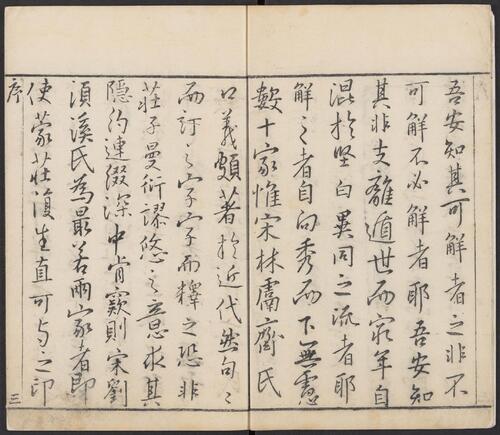 吾安知其可解者之非不
可解不必解者耶吾安知
其非支離遁世而窮年自
混於堅白異同之流者耶
解之者自向秀而下無慮
數十家惟宋林鬳齋氏
口義頗著於近代然句々
而訂之字字而釋之恐非
莊子曼衍謬悠之意求其
隐約連綴深中肯窾則宋劉
湏溪氏為最若兩家者即
使蒙莊復生直可与之印
序
三